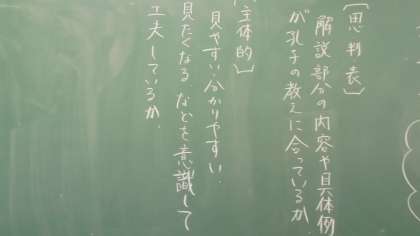 〔思判表〕
解説部分の内容や具体例
が孔子の教えに合っているか
〔主体的〕
見やすい、分かりやすい、
見たくなる、などを意識して
工夫しているか。